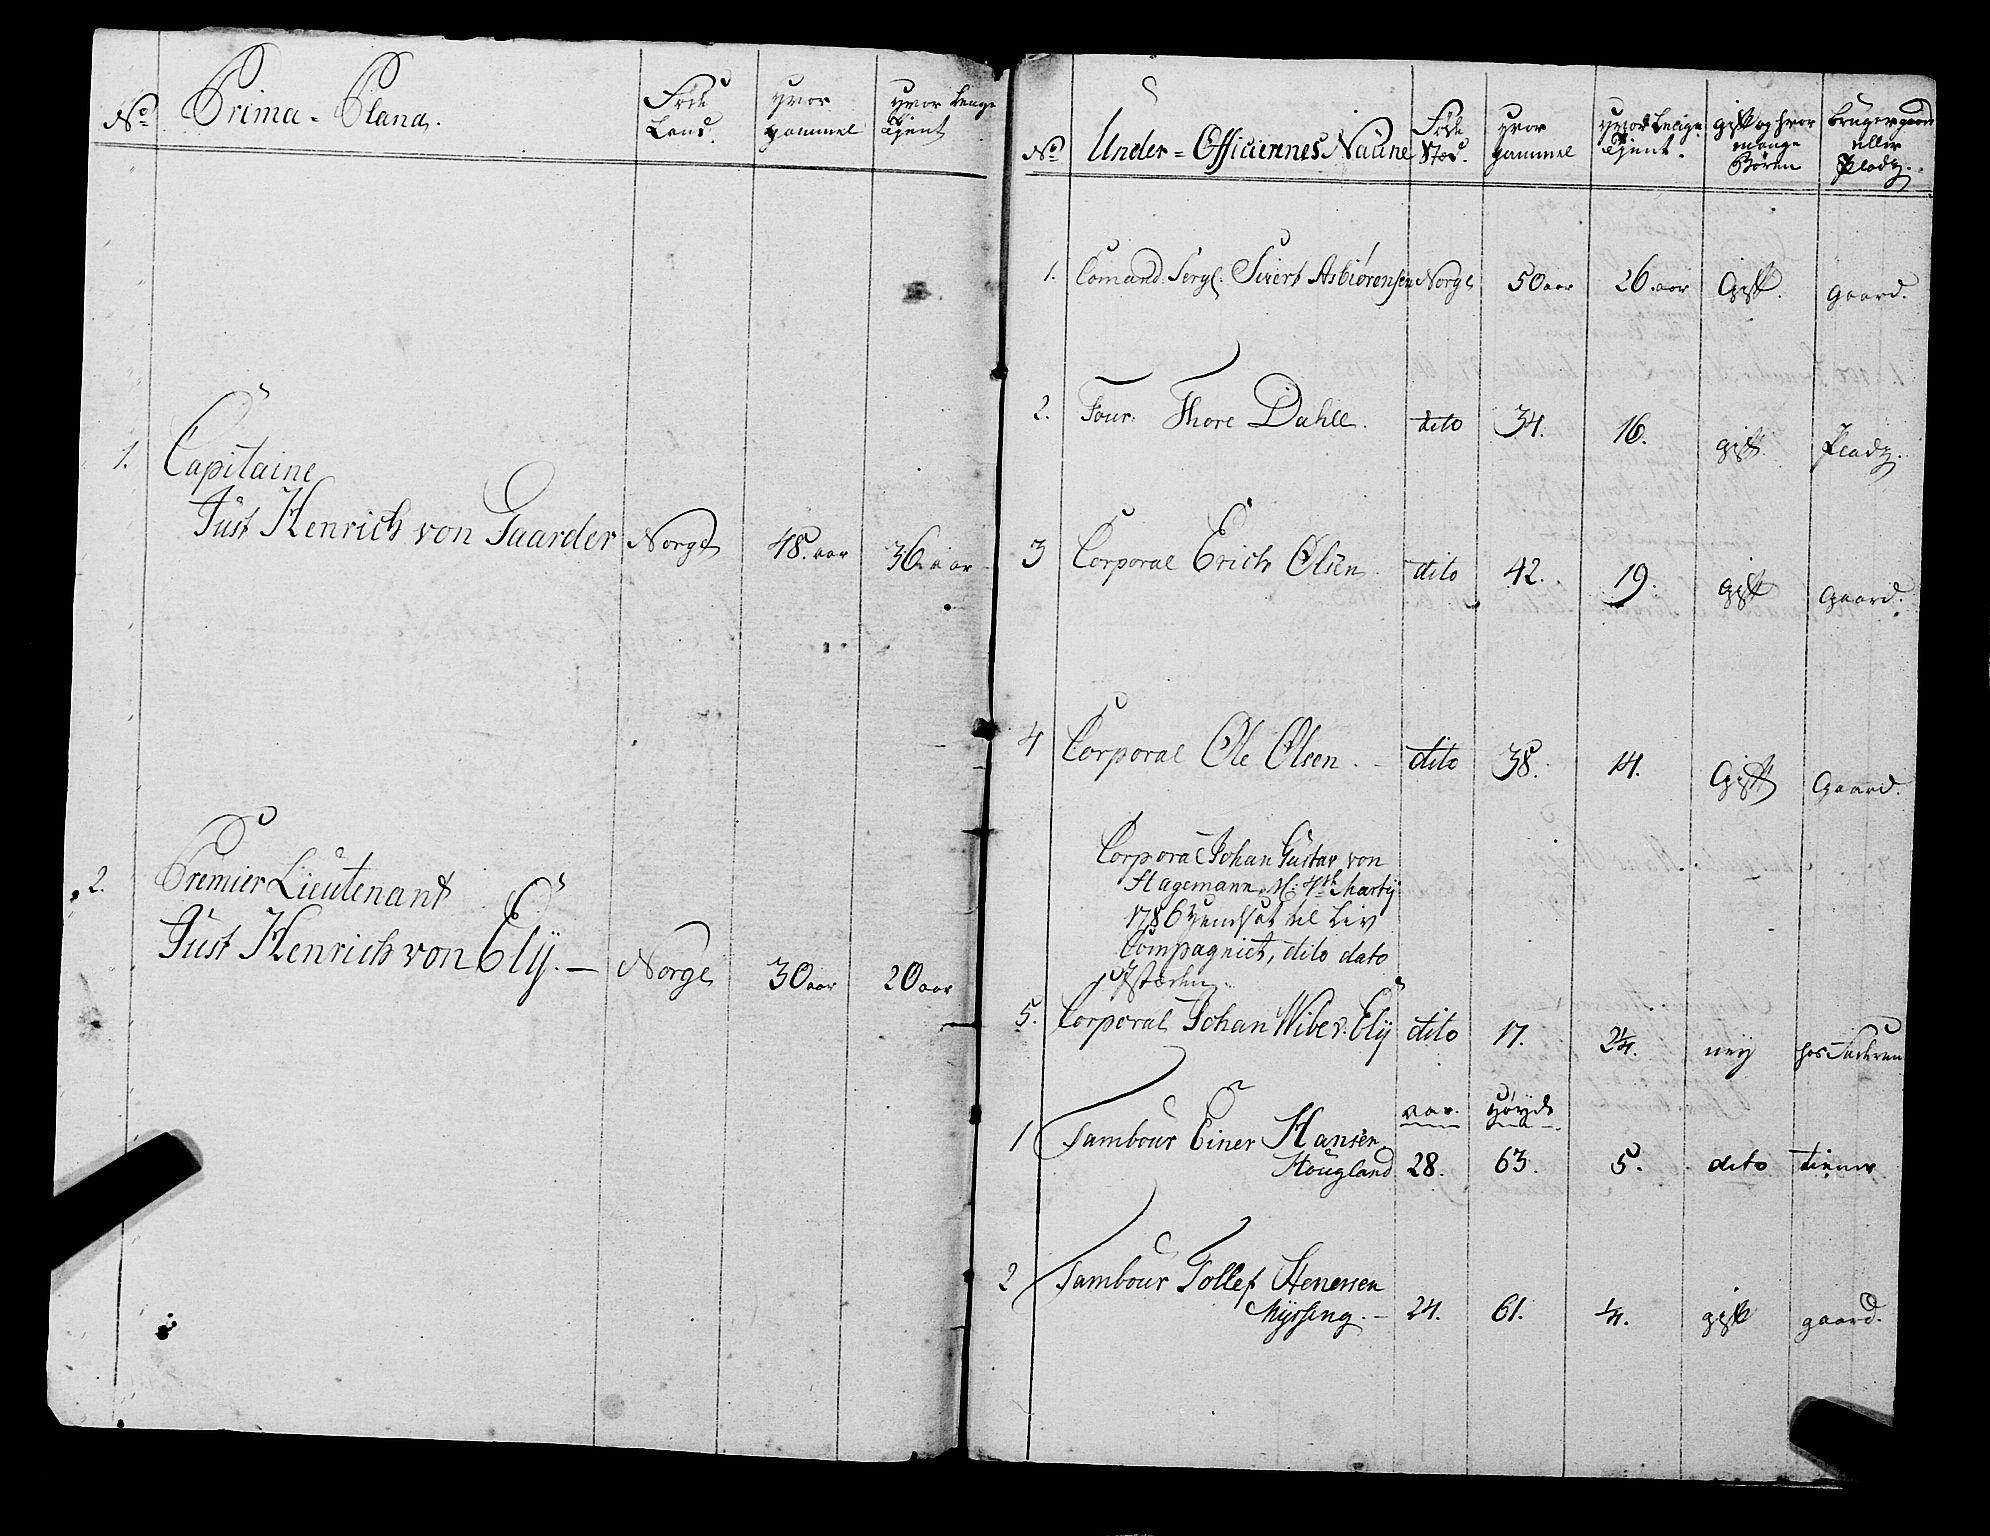 No Prima-Plana. Føde Land. hvor gammel hvor lenge tient
1. Capitaine
Just Henrich von Gaarder Norge 48. aar 36 aar
2. Premier Lieutenant
Just Henrich von Elÿ. — Norge 30 aar 20 aar
No Under-Officiernes Naune Føde Stæd. hvor gammel hvor lenge tient. gift og hvor mange Børen bruger gaard eller Pladz.
1. Comand. Serg. Sivert Asbiørensen Norge 50 aar 26. aar Gift. gaard.
2. Four: Thore Dahll. dito 34. 16. gift. Pladz.
3 Corporal Erich Olsen. dito 42. 19. gift gaard.
4 Corporal Ole Olsen. - dito 38. 14. Gift Gaard.
Corporal Johan Gustav von
Hagemann, 4de Martij
1786 til Liv
Compagniet, dito dato
5. Corporal Johan Wibe v. Elÿ dito 17. 2¼. neÿ hos Faderen
aar. Høyde
1 Tambour Einer Hansen
Hougland 28. 63. 5. dito tiener
2 Tambour Tollef Stenersen
Myssing. - 24. 61. ¼. gift gaard.